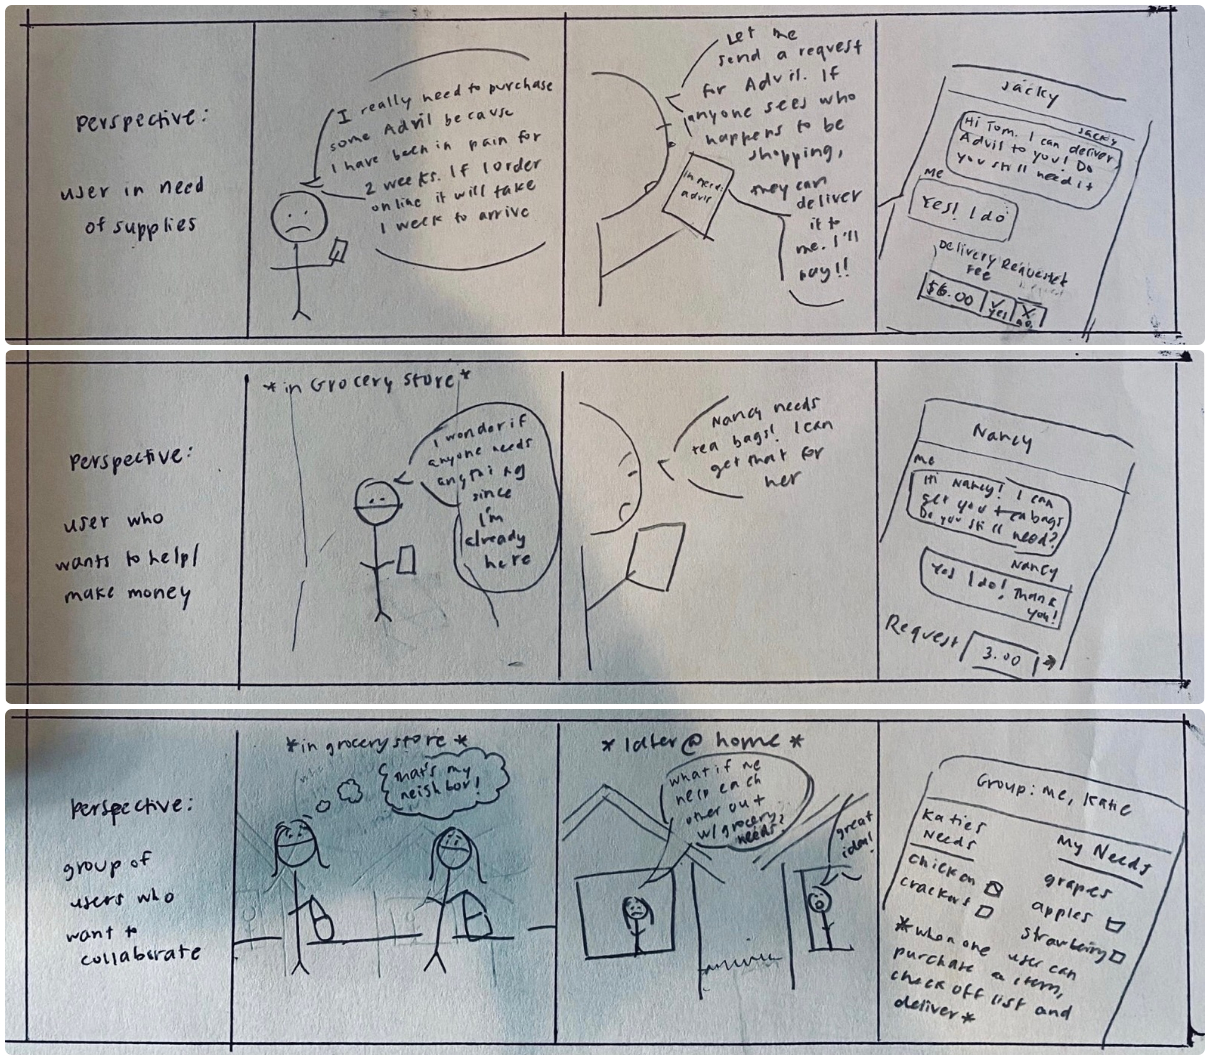 Perspective:
user in need
of supplies
I really need to purchase
some Advil because
I have been in pain for
2 weeks. If I order
online it will take
1 week to arrive
Let me
send a request
for Advil. If
anyone sees who
happens to be
shopping,
they can
deliver
it to
me. I'll
pay!!
in need:
advil
Jacky
Jacky
Hi Tom. I can deliver
Advil to you! Do
you still need it
me
Yes! I do
Delivery Requested
Fee
$6.00
yes
no
Perspective:
user who
wants to help/
make money
*in Grocery store*
I wonder if
anyone needs
anything
since
I'm
already
here
Nancy needs
tea bags! I can
get that for
her
Nancy
me
Hi Nancy! I can
get you tea bags
Do you still need?
Nancy
Yes I do! Thank
you!
Request
3.00
Perspective:
group of
users who
want to
collaborate
*in grocery store*
that's my
neighbor!
*later @ home*
what if we
help each
other out
w/ grocery
needs?
great
idea!
Group: me, Katie
Katies
Needs
chicken
crackers
My Needs
grapes
apples
strawberry
*when one user can
purchase a item,
check off list and
deliver*